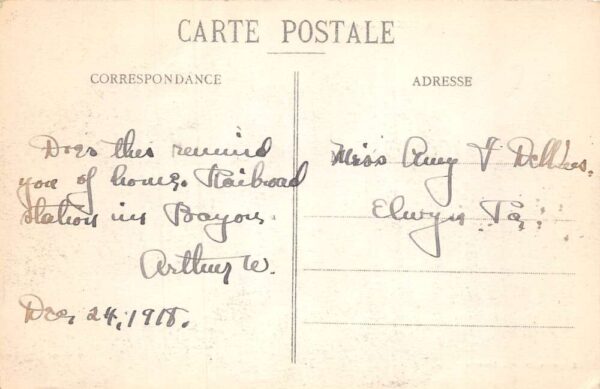 CARTE POSTALE
CORRESPONDANCE
ADRESSE
Does this remind
you of home. Railroad
station in Bayon.
Arthur W.
Dec, 24, 1918.
Miss Amy T DeWees,
Elwyn Pa,